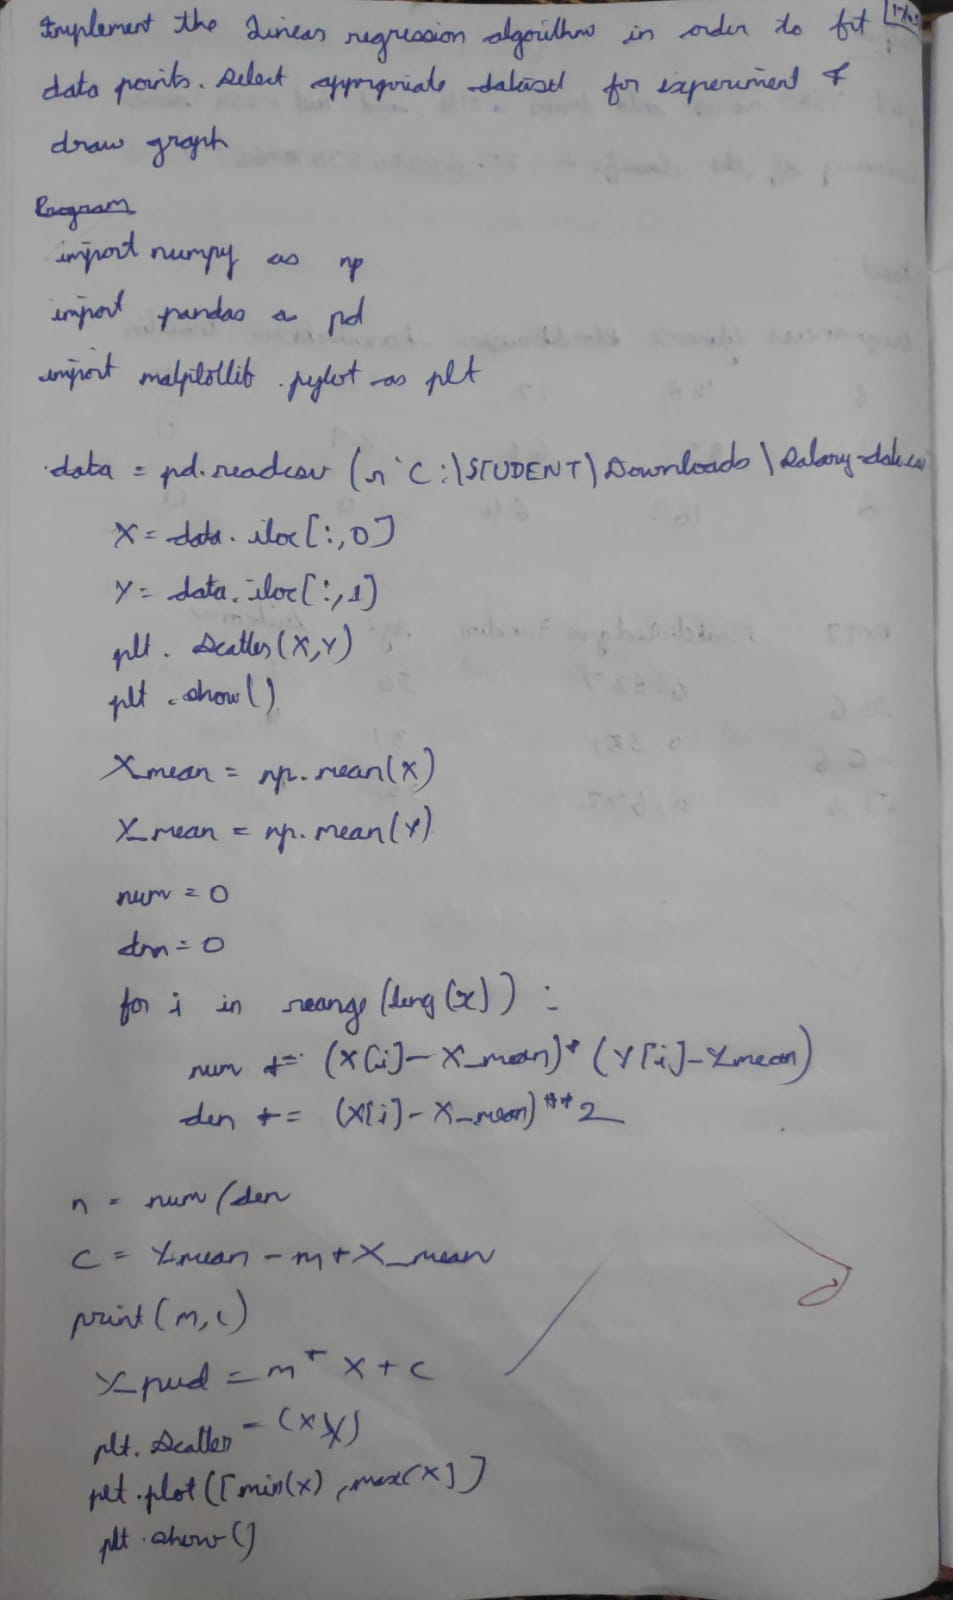 Implement the Linear regression algorithm in order to fit
data points. Select appropriate dataset for experiment &
draw graph
Program
import numpy as np
import pandas as pd
import malptollib .pylot as plt
data = pd.readcsv (r'C:\STUDENT\Downloads\Salary-data.csv
X = data. iloc[:,0]
Y = data. iloc[:,1]
plt. Scatter(X,Y)
plt .show()
Xmean = np.mean(X)
Y_mean = np.mean(Y)
num = 0
den = 0
for i in reange (leng(x)) :
num += (X[i]-X_mean)* (Y[i]-Y_mean)
den += (X[i]-X_mean)**2
n = num/den
C = Y_mean - m*X_mean
print(m,c)
Y_pred = m* X + c
plt. Scatter - (X Y)
plt .plot([min(x), max(X])
plt .show()